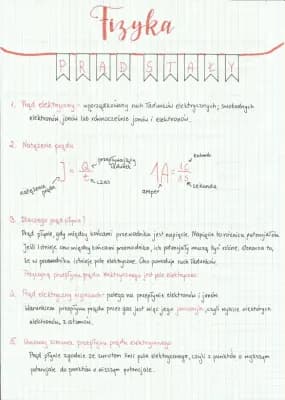 Fizyka
PRĄD STAŁY
1. Prąd elektryczny - uporządkowany ruch ładunków elektrycznych; swobodnych
elektronów, jonów lub równocześnie jonów i elektronów.
2. Natężenie prądu
J = Q/t
przepływający ładunek
czas
natężenie prądu
1A = 1C/1s
kulomb
sekunda
amper
3. Dlaczego prąd płynie?
Prąd płynie, gdy między końcami przewodnika jest napięcie. Napięcie to różnica potencjałów.
Jeśli istnieje ono między końcami przewodnika, ich potencjały muszą być różne. Oznacza to,
że w przewodniku istnieje pole elektryczne. Ono powoduje ruch ładunków.
Przyczyną przepływu prądu elektrycznego jest pole elektryczne.
Prąd elektryczny w gazach - polega na przepływie elektronów i jonów.
Warunkiem przepływu prądu przez gaz jest więc jego jonizacja, czyli wybicie niektórych
elektronów, z atomów.
5. Umowny kierunek przepływu prądu elektrycznego
Prąd płynie zgodnie ze zwrotem linii pola elektrycznego, czyli z punktów o wyższym
potencjale do punktów o niższym potencjale.